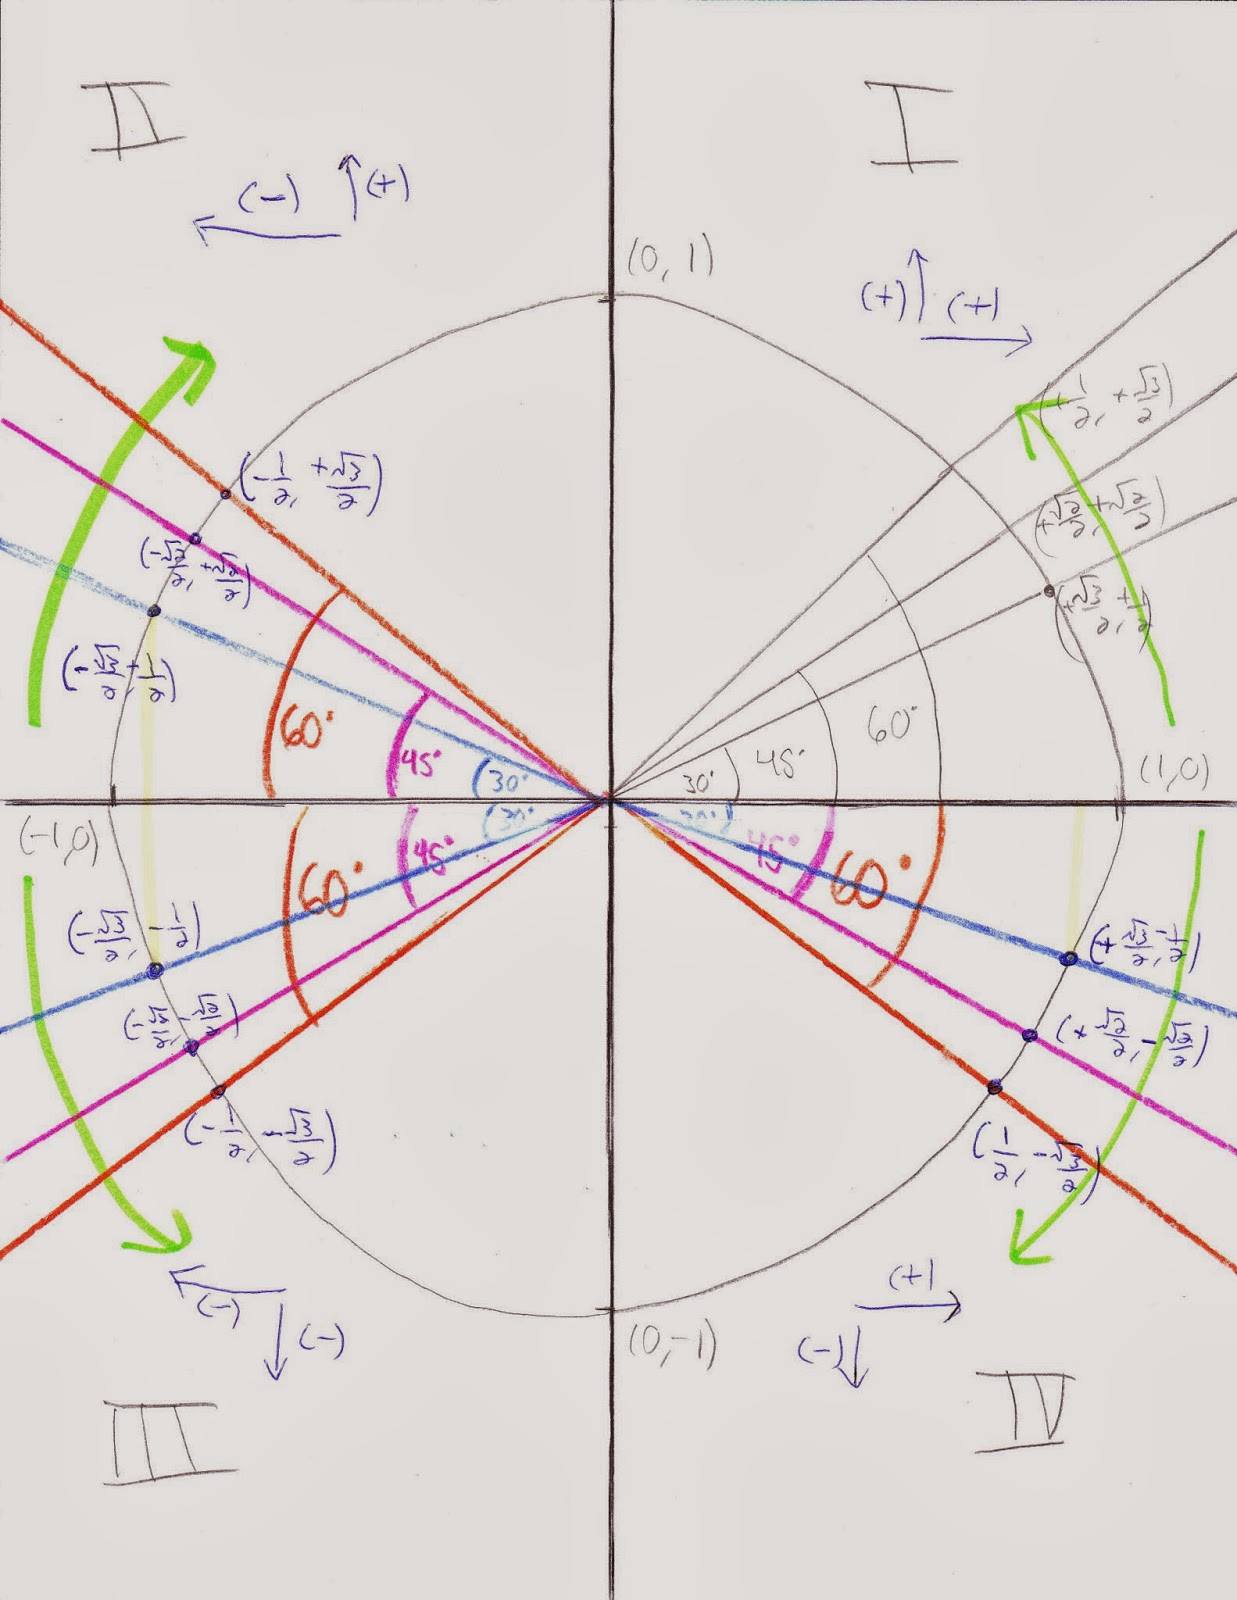 II
I
(-)
(+)
(0, 1)
(+)
(+)
(+1/2, +√3/2)
(-1/2, +√3/2)
(+√2/2, +√2/2)
(-√2/2, +√2/2)
(+√3/2, +1/2)
(-√3/2, +1/2)
60°
60°
45°
45°
30°
30°
(1,0)
(-1,0)
30°
30°
45°
45°
60°
60°
(-√3/2, -1/2)
(+√3/2, -1/2)
(-√2/2, -√2/2)
(+√2/2, -√2/2)
(-1/2, -√3/2)
(1/2, -√3/2)
(-)
(-)
(+)
(-)
(0,-1)
III
IV